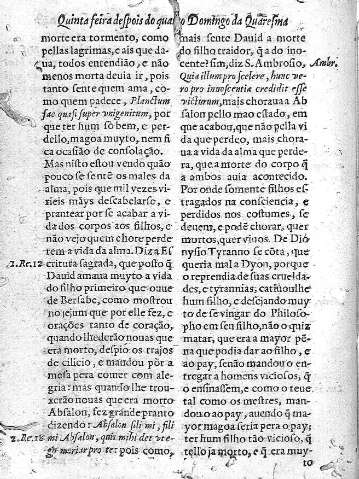 Quinta feira despois do quarto Domingo da Quaresma
morte era tormento, como
pellas lagrimas, e ais que da-
ua, todos entendião, e não
menos morta deuia ir, pois
tanto sente quem ama, como
como quem padece, Planctum
fac quasi super vnigenitum, por
que ter hum só bem, e per-
dello, magoa muyto, nem fi
ca ocasião de consolação.
Mas nisto estou vendo quão
pouco se sentẽ os males da
alma, pois que mil vezes vi-
rieis mãys descabelarse, e
prantear por se acabar a vi-
da dos corpos aos filhos, e
não vejo quem chore perde
rem a vida da alma. Diz a Es
2. Re. 12 critura sagrada, que posto q̃
Dauid amaua muyto a vida
do filho primeiro que ouue
de Bersabe, como mostrou
no jejum que por elle fez, e
orações tanto de coração,
quando lhe derão nouas que
era morto, despio os trajos
de cilicio, e mandou pòr a
mesa pera comer com ale-
gria: mas quando lhe trou-
xerão nouas que era morto
Absalon, fez grande pranto
dizendo: Absalon fili mi, fili
2. Re. 18 mi Absalon, quis mihi det vt e-
go moriar pro te: pois como,
mais sente Dauid a morte
do filho traidor, q̃ a do ino-
cente? sim, diz S. Ambrosio, Ambr.
Quia illum pro scelere, hunc ve-
ro pro innocentia credidit esse
victurum, mais choraua a Ab
salon pello mao estado, em
que acabou, que não pella vi
da que perdeo, mais chora-
ua a vida da alma que perde-
ra, que a morte do corpo q̃
a ambos auia acontecido.
Por onde somente filhos es-
tragados na consciencia, e
perdidos nos costumes, se
deuem, e podẽ chorar, quer
mortos, quer viuos. De Dió
nysio Tyranno se cõta, que
queria mal a Dyon, porque
o reprendia de suas crueldа-
des, e tyrannias; catiuoulhe
hum filho, e desejando muy
to de se vingar do Philoso-
pho em seu filho, não o quiz
matar, que era a mayor pẽ-
na que podia dar ao filho, e
ao pay, senão mandou o en-
tregar a homens viciosos, q̃
o ensinassem, e como o teue
tal como os mestres, man-
dou o ao pay, auendo q̃ ma-
yor magoa seria pera o pay;
ter hum filho tão vicioso, q̃
tello ja morto, e q̃ era muy-
to